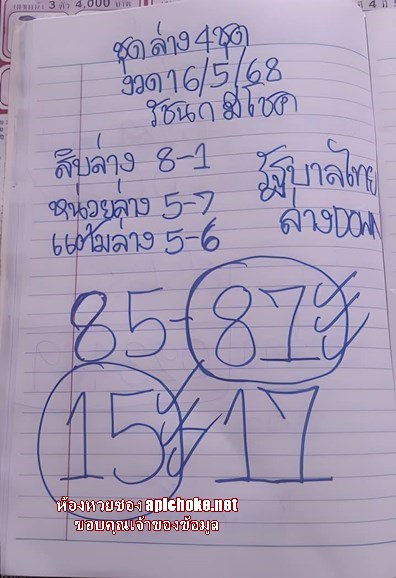 เลขหน้า 3 ตัว 4,000 บาท
ชุดล่าง 4 ชุด
งวด 16/5/68
รัชนก มีโชค
สิบล่าง 8-1
หน่วยล่าง 5-7
แต้มล่าง 5-6
รัฐบาลไทย
ล่าง DOWN
85-87
15-17
ห้องหวยซอง apichoke.net
ขอบคุณเจ้าของข้อมูล